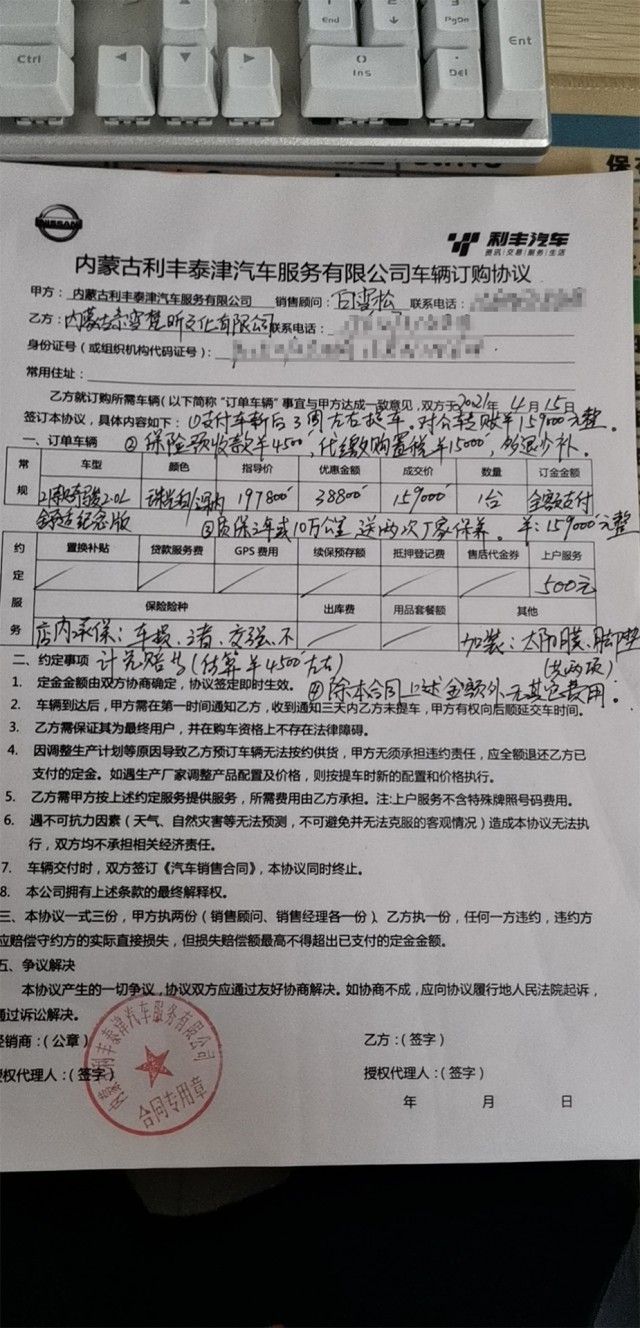 End
PgDn
Ent
Ctrl
0
Ins
Del
NISSAN
利丰汽车
资讯|交易|服务|生活
内蒙古利丰泰津汽车服务有限公司车辆订购协议
甲方： 内蒙古利丰泰津汽车服务有限公司 销售顾问：白雪松 联系电话：
乙方：内蒙古 文化有限公司联系电话：
身份证号（或组织机构代码证号）：
常用住址：
乙方就订购所需车辆（以下简称“订单车辆”事宜与甲方达成一致意见，双方于2021年4月15日
签订本协议，具体内容如下：①支付车款后3周左右提车。对公车款账￥159000元整。
一、订单车辆 ②保险预收款￥4500，代缴购置税￥15000，多退少补。
常规 车型 颜色 指导价 优惠金额 成交价 数量 订金金额
21款 2.0L 197800 38800 159000 1台 全额支付
纪念版 ③质保3年或10万公里 送两次厂家保养。 ￥：159000元整
约定服务 置换补贴 贷款服务费 GPS 费用 续保预存额 抵押登记费 售后代金券 上户服务
500元
保险险种 出库费 用品套餐额 其他
店内承保：车损、三者、交强、不 加装：太阳膜、脚垫
二、约定事项 计免赔 （估算￥4500左右） （共两项）
1. 定金金额由双方协商确定，协议签定即时生效。 ④除本合同上述金额外无其它费用：
2. 车辆到达后，甲方需在第一时间通知乙方，收到通知三天内乙方未提车，甲方有权向后顺延交车时间。
3. 乙方需保证其为最终用户，并在购车资格上不存在法律障碍。
4. 因调整生产计划等原因导致乙方预订车辆无法按约供货，甲方无须承担违约责任，应全额退还乙方已
支付的定金。如遇生产厂家调整产品配置及价格，则按提车时新的配置和价格执行。
5. 乙方需甲方按上述约定服务提供服务，所需费用由乙方承担。注:上户服务不含特殊牌照号码费用。
6. 遇不可抗力因素（天气、自然灾害等无法预测，不可避免并无法克服的客观情况）造成本协议无法执
行，双方均不承担相关经济责任。
7. 车辆交付时，双方签订《汽车销售合同》，本协议同时终止。
8. 本公司拥有上述条款的最终解释权。
三、本协议一式三份，甲方执两份（销售顾问、销售经理各一份）、乙方执一份，任何一方违约，违约方
应赔偿守约方的实际直接损失，但损失赔偿额最高不得超出已支付的定金金额。
五、争议解决
本协议产生的一切争议，协议双方应通过友好协商解决。如协商不成，应向协议履行地人民法院起诉，
通过诉讼解决。
经销商：（公章） 乙方：（签字）
授权代理人：（签字） 授权代理人：（签字）
年 月 日
内蒙古利丰泰津汽车服务有限公司
合同专用章